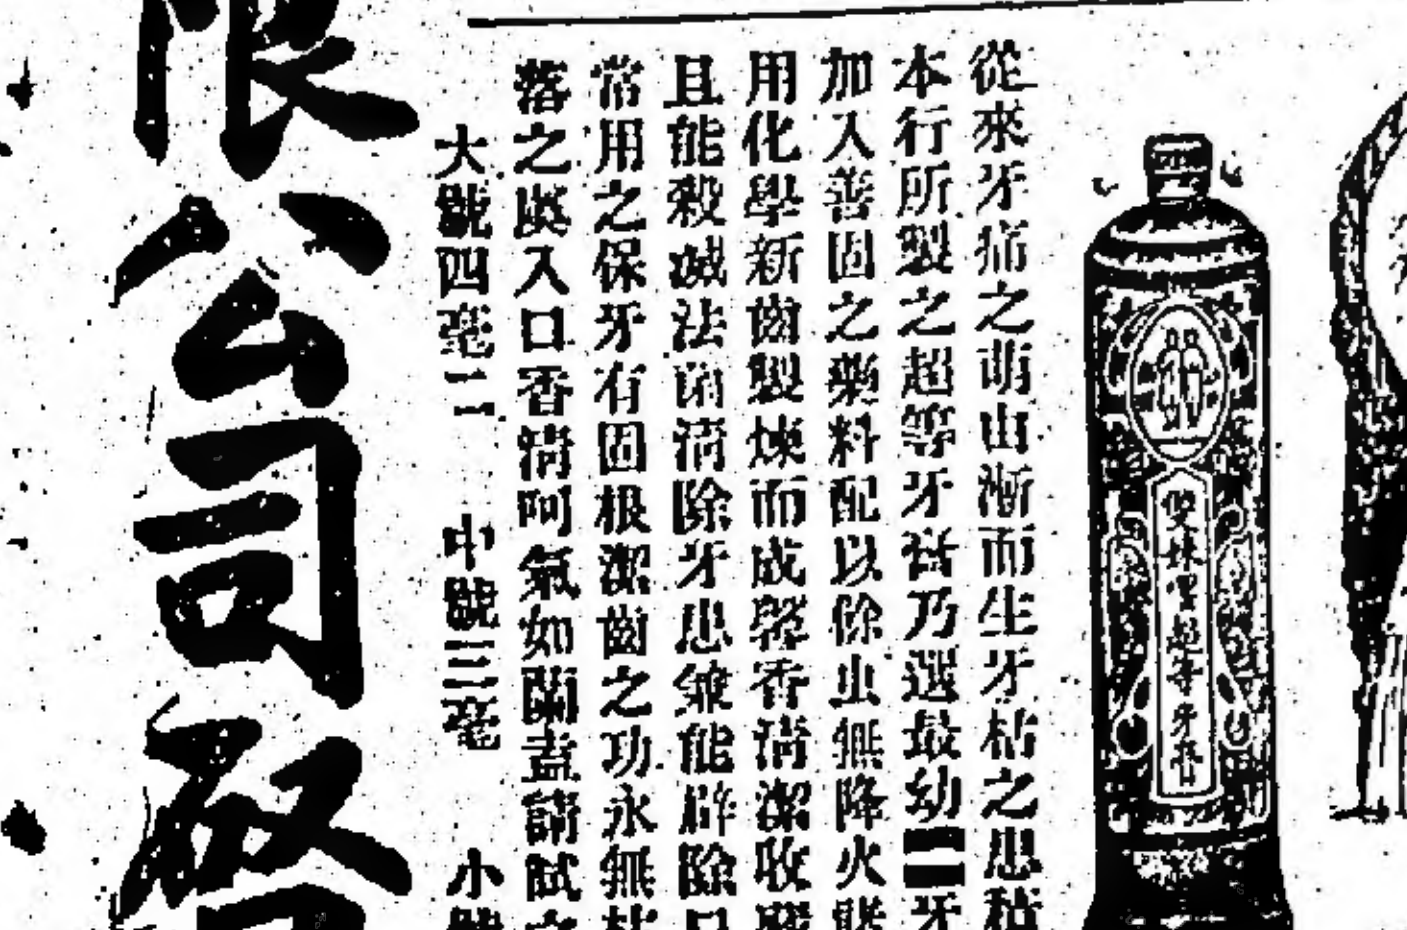 從來牙痛之萌由漸而生牙枯之患積
本行所製之超等牙膏乃選最幼【二牙
加入善固之藥料配以除虫無降火
用化學新齒製煉而成馨香清潔收
且能殺滅法菌消除牙患兼能辟除口
常用之保牙有固根潔齒之功永無枯
落之虞入口香清呵氣如蘭盍請試之
大號四毫二 中號三毫 小號
限公司
雙妹嘜超等牙膏